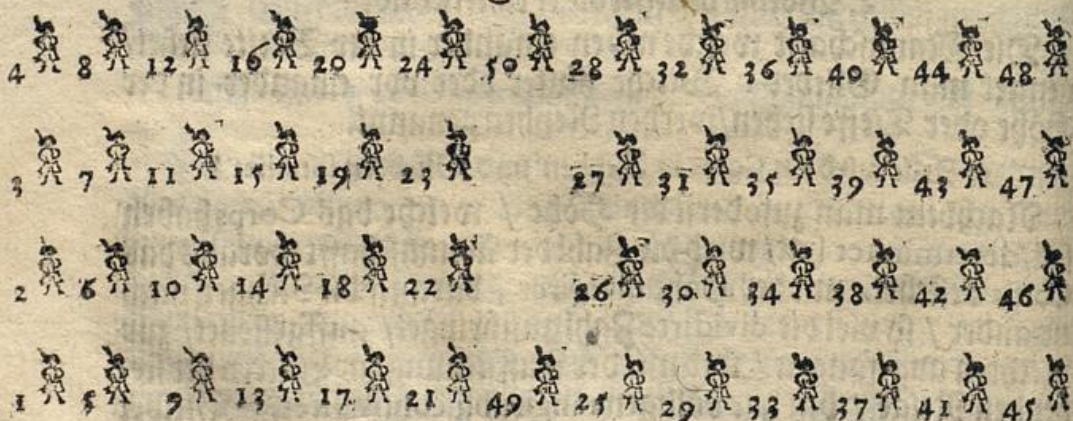 4 8 12 16 20 24 50 28 32 36 40 44 48
3 7 11 15 19 23 27 31 35 39 43 47
2 6 10 14 18 22 26 30 34 38 42 46
1 5 9 13 17 21 49 25 29 33 37 41 45